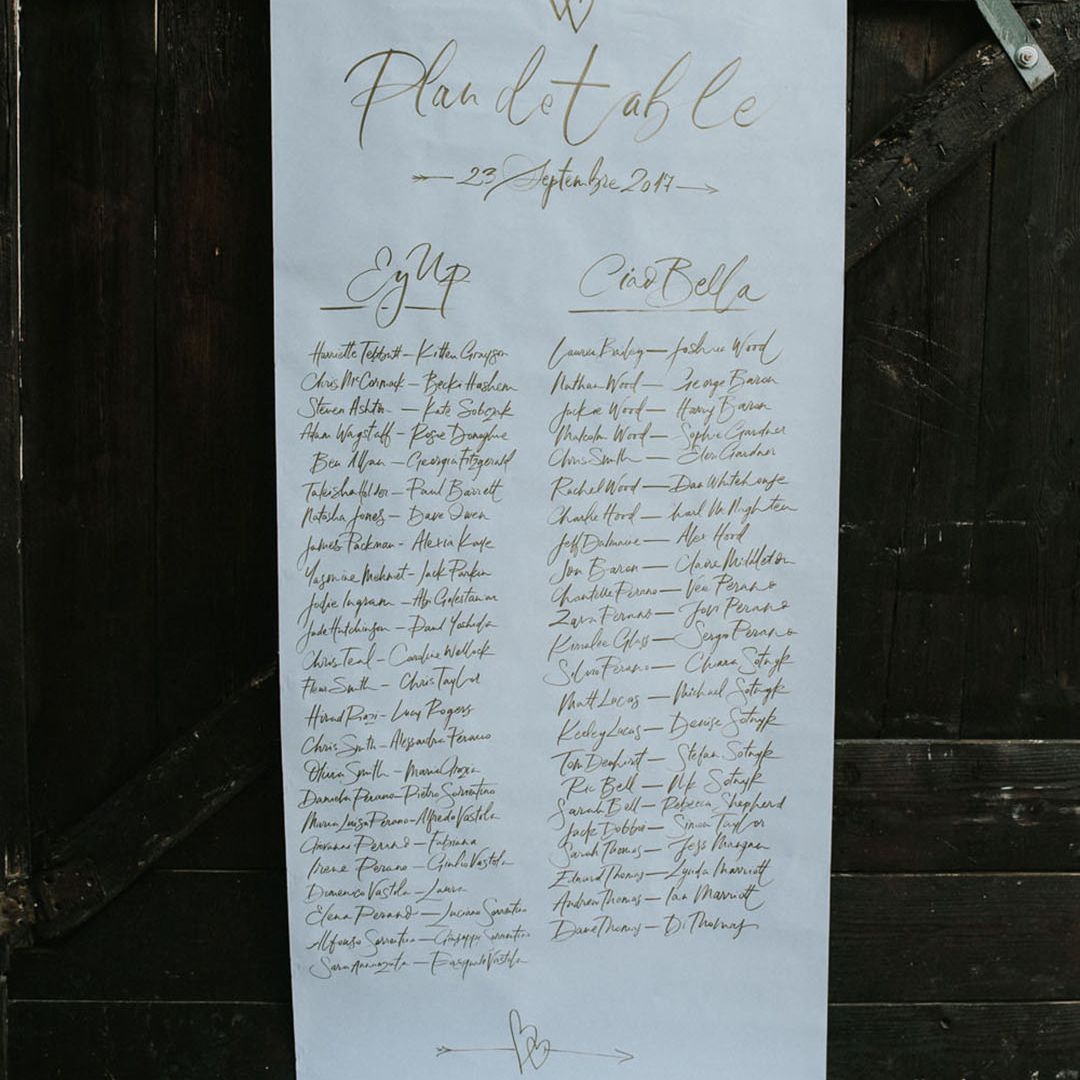 Plan de table
23 Septembre 2017
Ey Up
Harriette Tebbutt – Kitten Grayson
Chris McCormack – Becki Hashem
Steven Ashton – Kate Sobczuk
Adam Wagstaff – Rosie Donoghue
Ben Allan – Georgia Fitzgerald
Takeisha Holder – Paul Barrett
Natasha Jones – Dave Owen
James Packman – Alexia Kaye
Yasmine Mehmet – Jack Parkin
Jodie Ingram – Abi Golestanian
Jade Hutchinson – Paul Yoshida
Chris Teal – Caroline Wellock
Fleur Smith – Chris Taylor
Hirad – Lucy Rogers
Chris Smith – Alessandra Perano
Olivia Smith – Maria
Daniela Perano – Pietro Sorrentino
Maria Luisa Perano – Alfredo Vastola
Giovanni Perano – Fabiana
Irene Perano – Giulio Vastola
Domenico Vastola – Laura
Elena Perano – Luciano Sorrentino
Alfonso Sorrentino – Giuseppe Sorrentino
Sara Annunziata – Pasquale Vastola
Ciao Bella
Lauren Bailey – Joshua Wood
Nathan Wood – George Baron
Jackie Wood – Harry Baron
Malcolm Wood – Sophie Gardner
Chris Smith – Gardner
Rachel Wood – Dan Whitehouse
Charlie Hood – Karl McNighten
Jeff – Alex Hood
Jon Baron – Claire Middleton
Chantelle Perano – Perano
Zara Perano – Jovi Perano
Kimalee Glass – Sergio Perano
Silvio Perano – Chiara Sotnyk
Matt Lucas – Michael Sotnyk
Keeley Lucas – Denise Sotnyk
Tom Denhirst – Stefan Sotnyk
Ric Bell – Nik Sotnyk
Sarah Bell – Rebecca Shepherd
Jack Dobbie – Simon Taylor
Sarah Thomas – Jess Mangan
Edward Thomas – Lynda Marriott
Andrew Thomas – Ian Marriott
Dave Thomas – Di Thomas